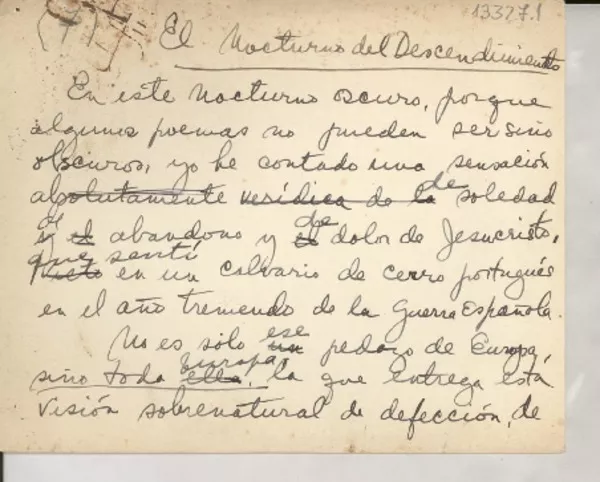 13327.1
El Nocturno del Descendimiento
En este Nocturno oscuro, porque
algunos poemas no pueden ser sino
obscuros, yo he contado una sensación
absolutamente verídica de la de soledad
y el de abandono y el de dolor de Jesucristo,
que sentí en un calvario de cerro portugués
en el año tremendo de la Guerra Española.
No es sólo un ese pedazo de Europa,
sino toda ella Europa, la que entrega esta
visión sobrenatural de defección, de